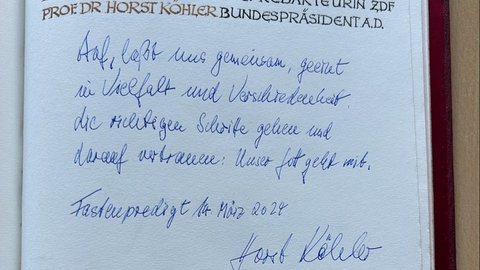 REDAKTEURIN ZDF
PROF DR HORST KÖHLER BUNDESPRÄSIDENT A.D.
Auf, laßt uns gemeinsam, geeint
in Vielfalt und Verschiedenheit
die richtigen Schritte gehen und
darauf vertrauen: Unser Gott geht mit.
Fastenpredigt 14. März 2024
Horst Köhler